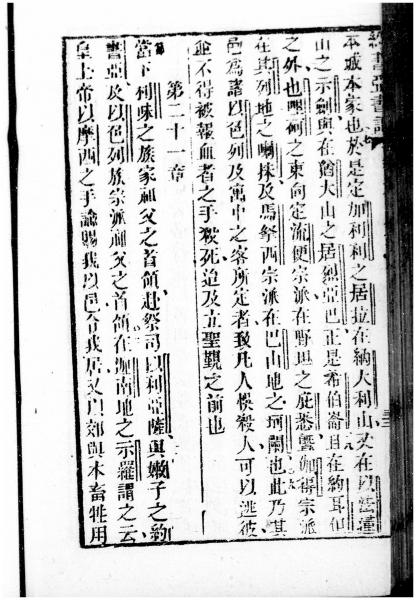 書亞書記
本城本家也於是定加利利之居拉在納大利山又在以法蓮
山之示劍與在猶大山之居烈亞巴正是希伯崙且在約耳但
之外也可之東向定流便宗派在野坦之庇悉伽得宗派
在其列地之喇抹及馬拏西宗派在巴山地之坷闌也此乃其
邑爲諸以色列及寓中之客所定者致凡人悞殺人可以逃彼
並不得被報血者之手殺死迨及立聖覲之前也
第二十一章
當下利味之族家祖父之首領赴祭司以利亞薩與嫩子之約
書亞及以色列族宗派祖父之首領在迦南地之示羅謂之云
皇上帝以摩西之手諭賜我以邑令我居又以郊與本畜牲用